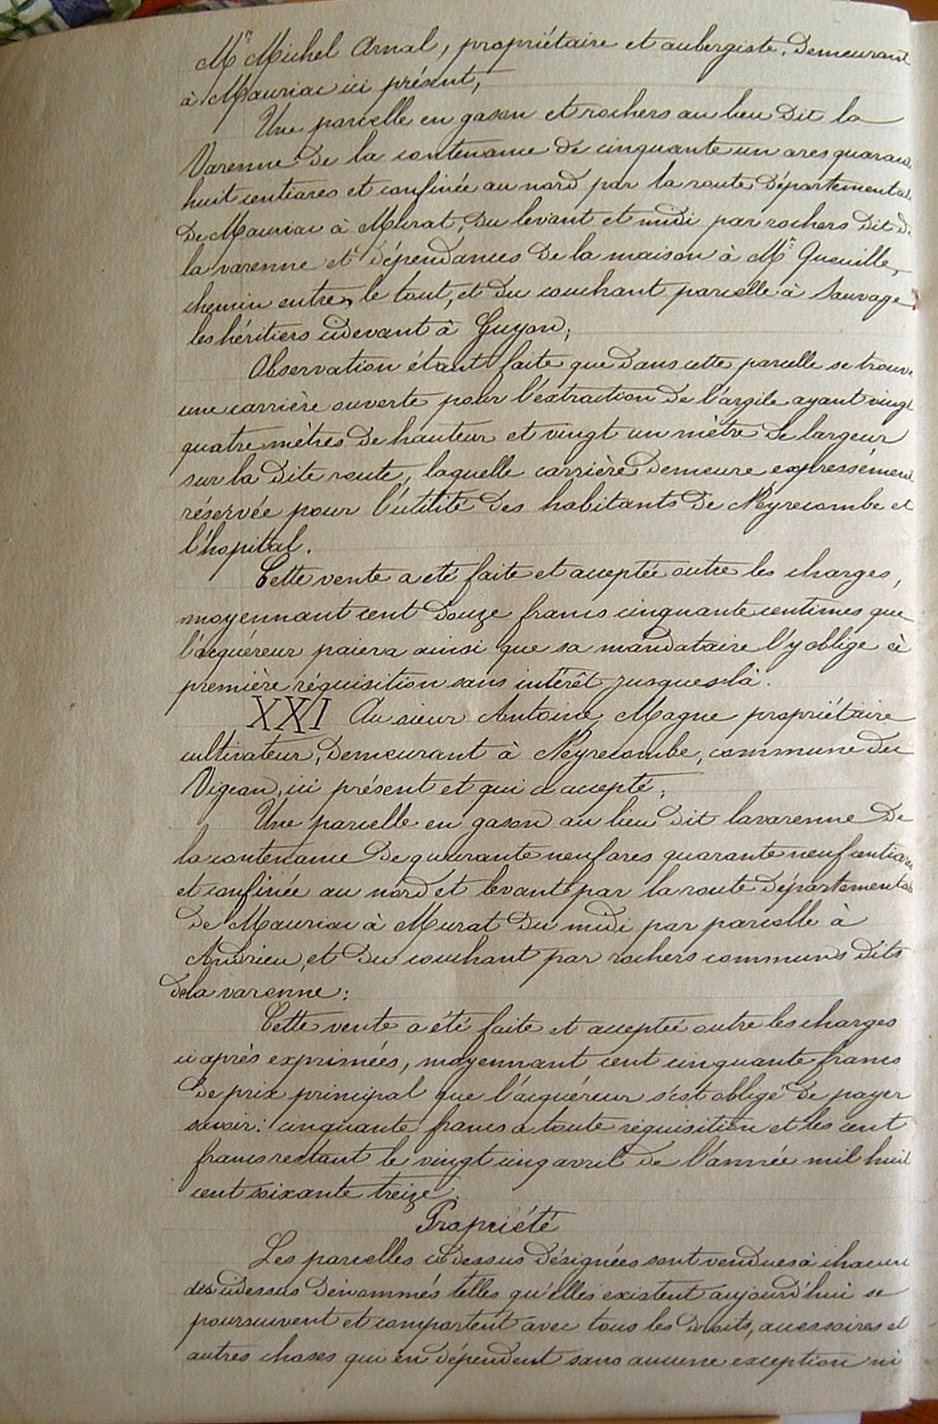 Mr Michel Arnal, propriétaire et aubergiste, demeurant
à Mauriac ici présent,
Une parcelle en gason et rochers au lieu dit la
Varenne de la contenance de cinquante un ares quarante
huit centiares et confinée au nord par la route départementale
de Mauriac à Murat, du levant et midi par rochers dit de
la varenne et dépendances de la maison à Mr Queuille,
chemin entre, le tout, et du couchant parcelle à Sauvage
les héritiers cidevant à Guyon;
Observation étant faite que dans cette parcelle se trouve
une carrière ouverte pour l'extraction de l'argile ayant vingt
quatre mètres de hauteur et vingt un mètre de largeur
sur la dite route, laquelle carrière demeure expressément
réservée pour l'utilité des habitants de Neyrecombe et
l'hopital.
Cette vente a été faite et acceptée outre les charges,
moyennant cent douze francs cinquante centimes que
l'acquéreur paiera ainsi que sa mandataire l'y oblige à
première réquisition sans intérêt jusques là.
XXI Au sieur Antoine Magne propriétaire
cultivateur, demeurant à Neyrecombe, commune du
Vigean, ici présent et qui a accepté;
Une parcelle en gason au lieu dit lavarenne de
la contenance de quarante neuf ares quarante neuf centiares
et confinée au nord et levant par la route départementale
de Mauriac à Murat du midi par parcelle à
Andrieu, et du couchant par rochers communs dits
de la varenne:
Cette vente a été faite et acceptée outre les charges
ci après exprimées, moyennant cent cinquante francs
de prix principal que l'acquéreur s'est obligé de payer
savoir: cinquante francs a toute réquisition et les cent
francs restant le vingt cinq avril de l'année mil huit
cent soixante treize.
Propriété
Les parcelles ci dessus désignées sont vendues à chacun
des cidessus dénommés telles qu'elles existent aujourd'hui se
poursuivent et comportent avec tous les droits, accessoires et
autres choses qui en dépendent sans aucune exception ni